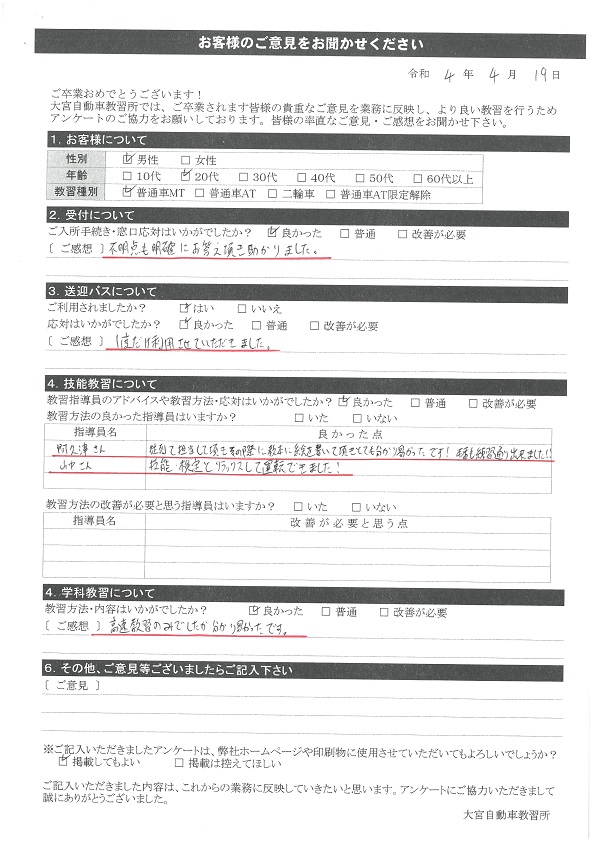 お客様のご意見をお聞かせください
令和 4 年 4 月 19 日
ご卒業おめでとうございます！
大宮自動車教習所では、ご卒業されます皆様の貴重なご意見を業務に反映し、より良い教習を行うため
アンケートのご協力をお願いしております。皆様の率直なご意見・ご感想をお聞かせ下さい。
1. お客様について
性別 ☑男性 □女性
年齢 □10代 ☑20代 □30代 □40代 □50代 □60代以上
教習種別 ☑普通車MT □普通車AT □二輪車 □普通車AT限定解除
2. 受付について
ご入所手続き・窓口応対はいかがでしたか？ ☑良かった □普通 □改善が必要
[ ご感想 ] 不明点も明確にお答え頂き助かりました。
3. 送迎バスについて
ご利用されましたか？ ☑はい □いいえ
応対はいかがでしたか？ ☑良かった □普通 □改善が必要
[ ご感想 ] 1度だけ利用させていただきました。
4. 技能教習について
教習指導員のアドバイスや教習方法・応対はいかがでしたか？ ☑良かった □普通 □改善が必要
教習方法の良かった指導員はいますか？ □いた □いない
指導員名 良かった点
阿久津さん 担当して頂き 教本に絵を書いて頂きとても分かり易かったです！ 練習通り出来ました!!
山中さん 技能・検定とリラックスして運転できました！
教習方法の改善が必要と思う指導員はいますか？ □いた □いない
指導員名 改善が必要と思う点
4. 学科教習について
教習方法・内容はいかがでしたか？ ☑良かった □普通 □改善が必要
[ ご感想 ] 高速教習のみでしたが分かり易かったです。
6. その他、ご意見等ございましたらご記入下さい
[ ご意見 ]
※ご記入いただきましたアンケートは、弊社ホームページや印刷物に使用させていただいてもよろしいでしょうか？
☑掲載してもよい □掲載は控えてほしい
ご記入いただきました内容は、これからの業務に反映していきたいと思います。アンケートにご協力いただきまして
誠にありがとうございました。
大宮自動車教習所